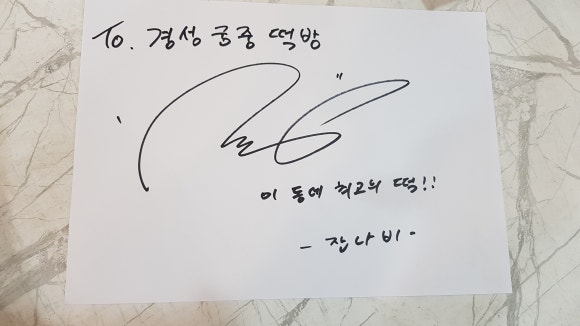 To. 경성 궁중 떡방
이 동네 최고의 떡!!
- 잔나비 -